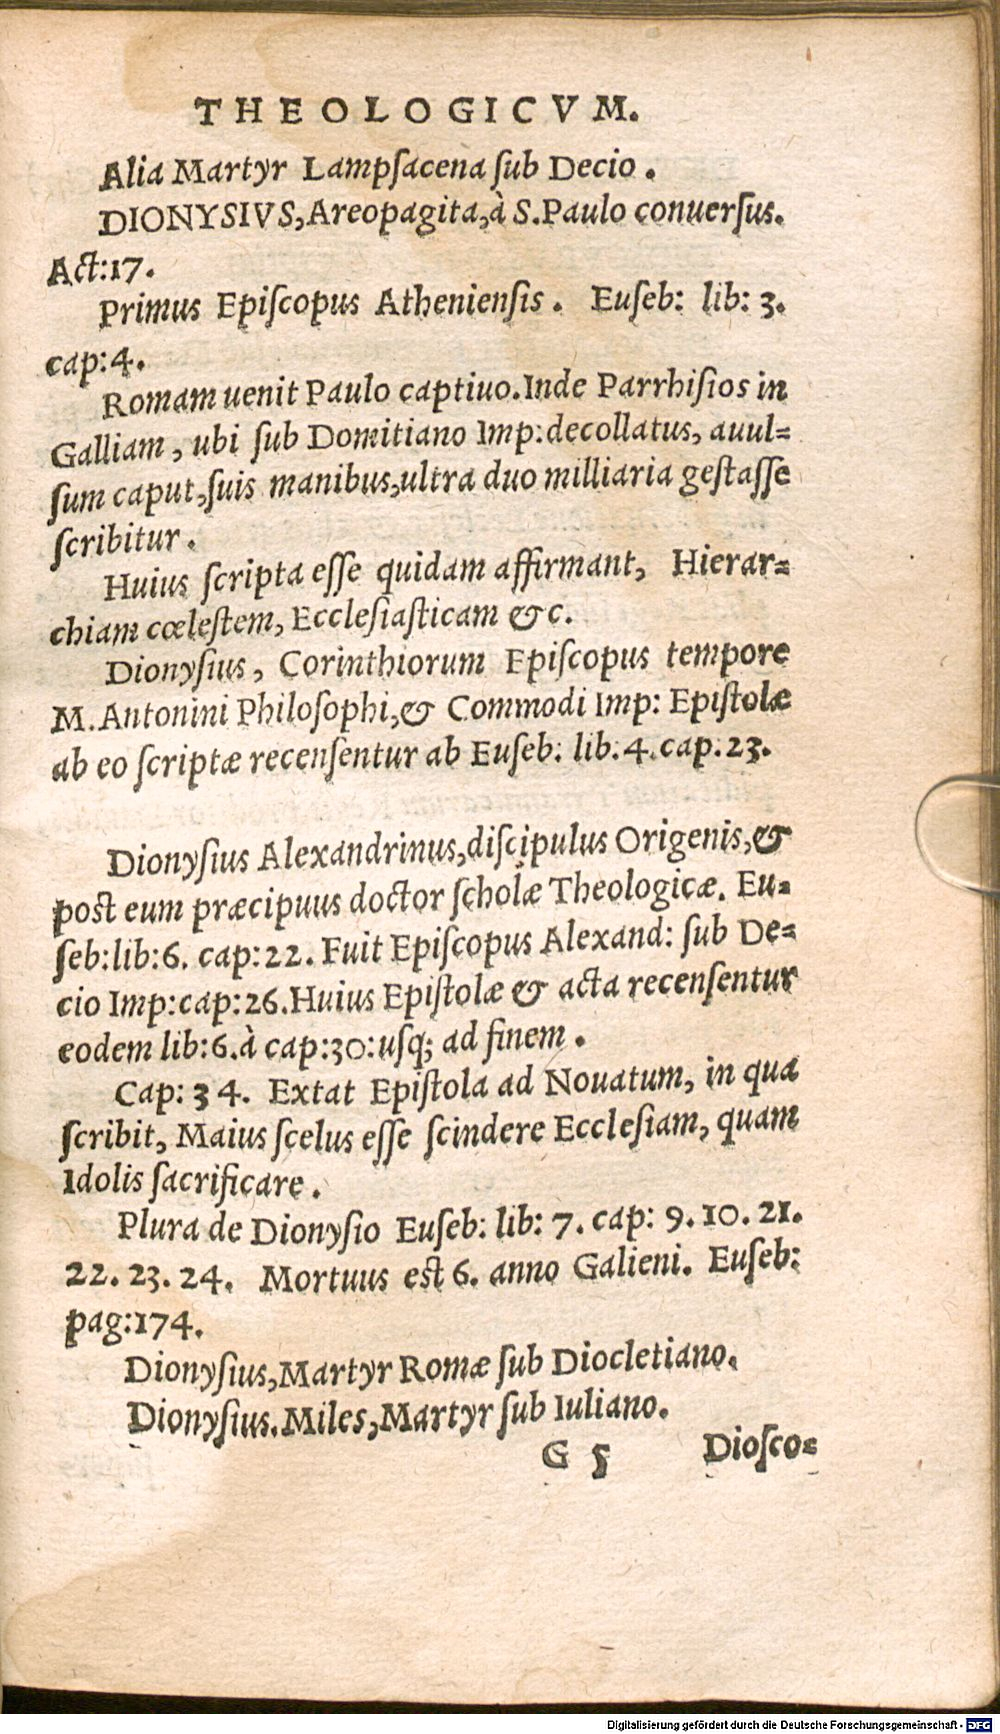 THEOLOGICVM.
Alia Martyr Lampſacena ſub Decio.
DIONYSIVS, Areopagita, à S. Paulo conuerſus.
Act: 17.
Primus Epiſcopus Athenienſis. Euſeb: lib: 3.
cap: 4.
Romam uenit Paulo captiuo. Inde Parrhiſios in
Galliam, ubi ſub Domitiano Imp: decollatus, auul=
ſum caput, ſuis manibus, ultra duo milliaria geſtaſſe
ſcribitur.
Huius ſcripta eſſe quidam affirmant, Hierar=
chiam cœleſtem, Eccleſiaſticam &c.
Dionyſius, Corinthiorum Epiſcopus tempore
M. Antonini Philoſophi, & Commodi Imp: Epiſtolæ
ab eo ſcriptæ recenſentur ab Euſeb: lib: 4. cap. 23.
Dionyſius Alexandrinus, diſcipulus Origenis, &
poſt eum præcipuus doctor ſcholæ Theologicæ. Eu=
ſeb: lib: 6. cap: 22. Fuit Epiſcopus Alexand: ſub De=
cio Imp: cap: 26. Huius Epiſtolæ & acta recenſentur
eodem lib: 6. à cap: 30: uſq; ad finem.
Cap: 34. Extat Epiſtola ad Nouatum, in qua
ſcribit, Maius ſcelus eſſe ſcindere Eccleſiam, quam
Idolis ſacrificare.
Plura de Dionyſio Euſeb: lib: 7. cap: 9. 10. 21.
22. 23. 24. Mortuus eſt 6. anno Galieni. Euſeb:
pag: 174.
Dionyſius, Martyr Romæ ſub Diocletiano.
Dionyſius. Miles, Martyr ſub Iuliano.
G 5 Dioſco=
Digitalisierung gefördert durch die Deutsche Forschungsgemeinschaft - DFG